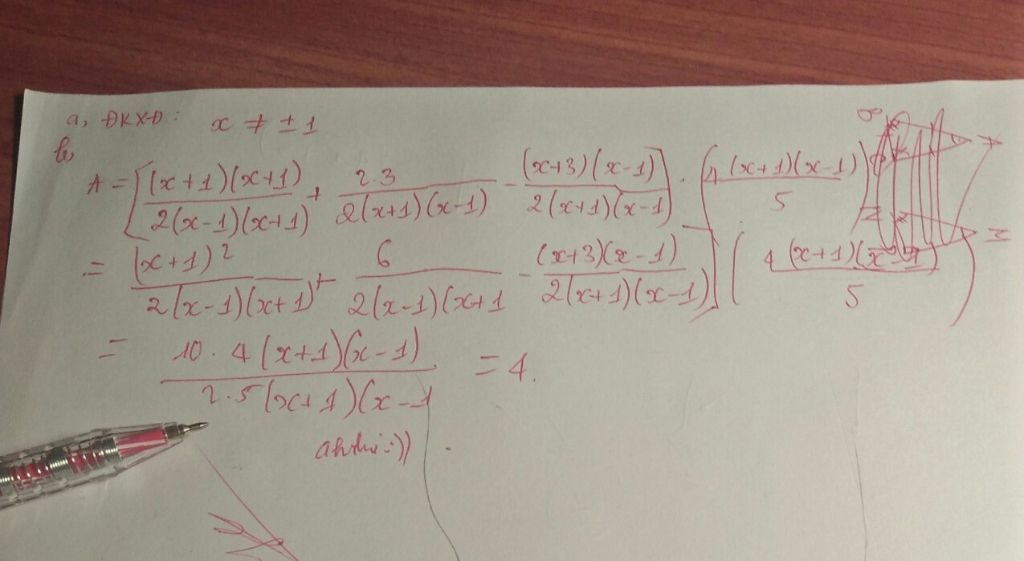 a, ĐKXĐ: x ≠ ± 1
b,
A = [(x+1)(x+1) / 2(x-1)(x+1) + 2.3 / 2(x+1)(x-1) - (x+3)(x-1) / 2(x+1)(x-1)] . (4(x+1)(x-1) / 5)
= (x+1)² / 2(x-1)(x+1) + 6 / 2(x-1)(x+1 - (x+3)(x-1) / 2(x+1)(x-1)] (4(x+1)(x-1) / 5)
= 10.4(x+1)(x-1) / 2.5(x+1)(x-1 = 4.